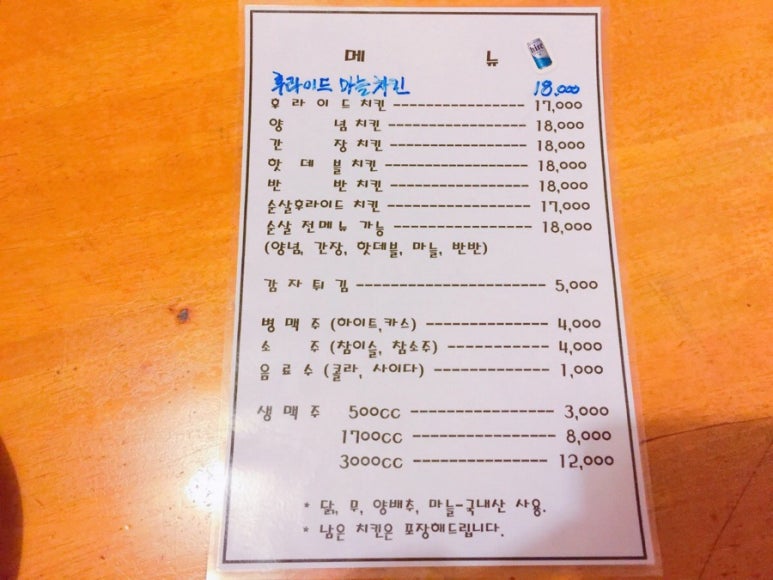 메 뉴
후라이드 마늘치킨 18,000
후 라 이 드 치킨 ---------------- 17,000
양 념 치킨 ---------------- 18,000
간 장 치킨 ---------------- 18,000
핫 데 블 치킨 ---------------- 18,000
반 반 치킨 ---------------- 18,000
순살후라이드 치킨 ---------------- 17,000
순살 전메뉴 가능 ---------------- 18,000
(양념, 간장, 핫데블, 마늘, 반반)
감 자 튀 김 ---------------------- 5,000
병 맥 주 (하이트,카스) -------------- 4,000
소 주 (참이슬, 참소주) -------------- 4,000
음 료 수 (콜라, 사이다) ------------- 1,000
생 맥 주 500cc ---------------- 3,000
1700cc ---------------- 8,000
3000cc ---------------- 12,000
* 닭, 무, 양배추, 마늘-국내산 사용.
* 남은 치킨은 포장해드립니다.